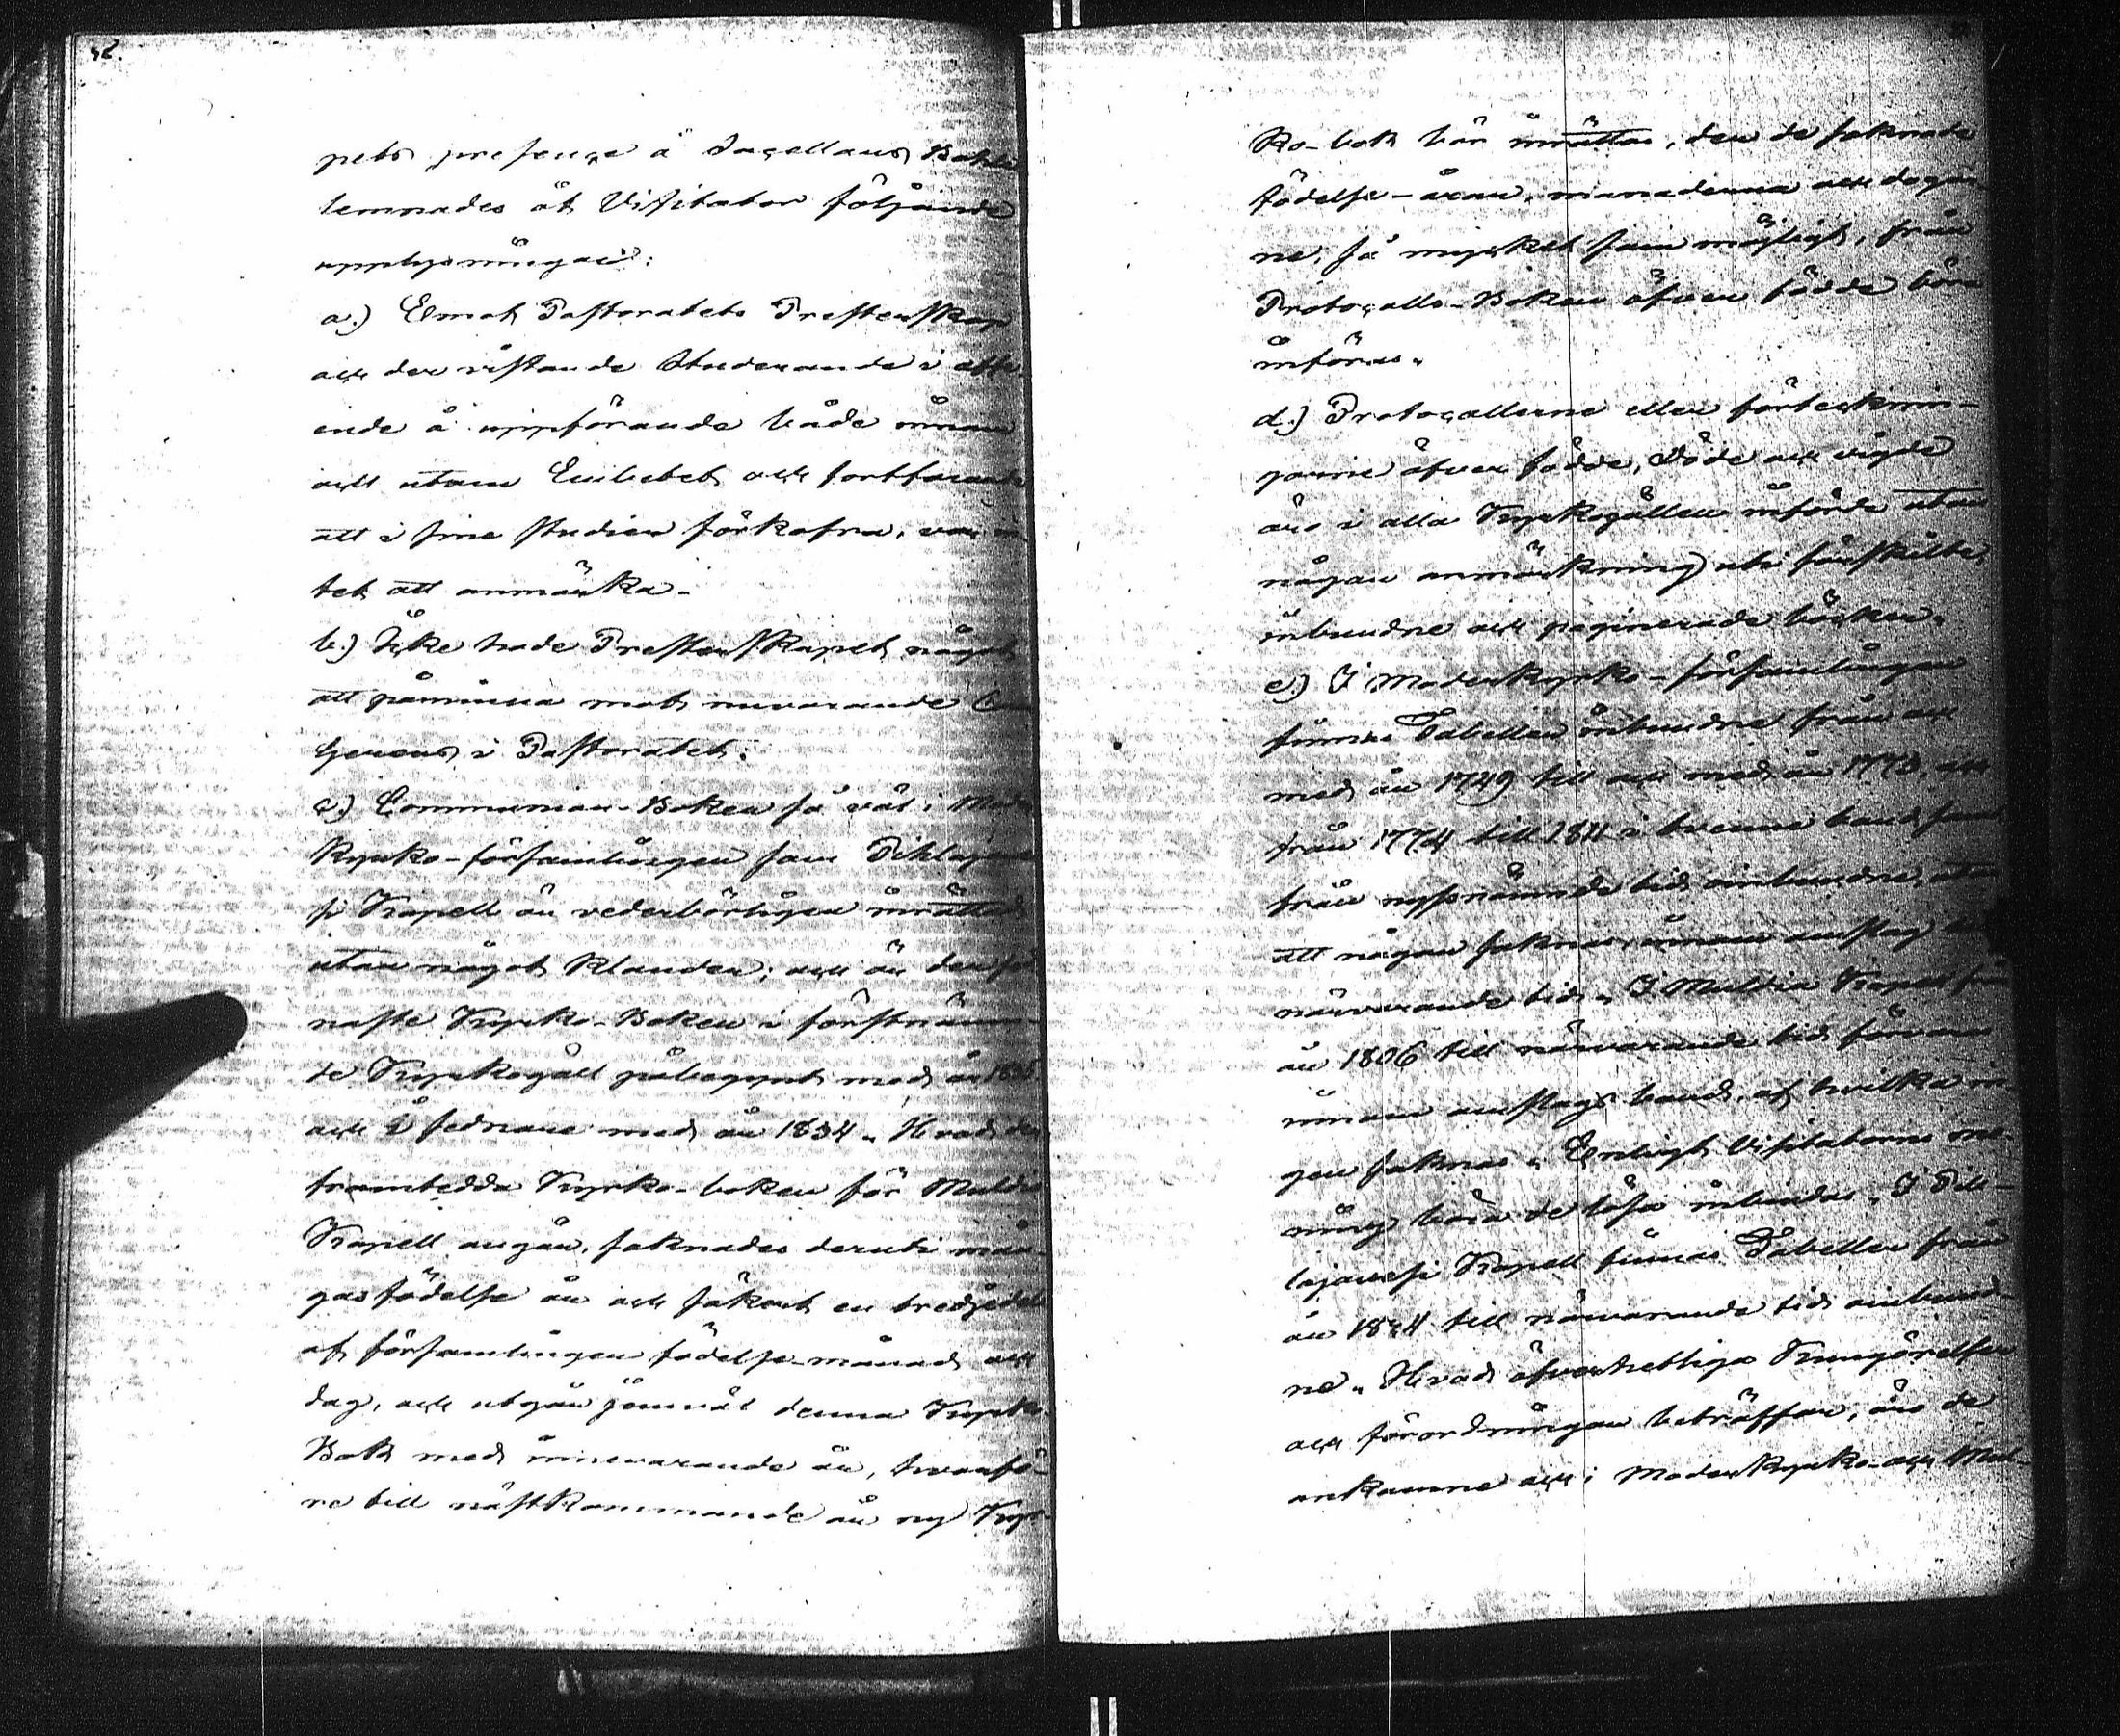 46.
pets presence å Sacellans Bohle
lemnades åt Visitator följande
upplysningar:
a.) Emot Pastoratets Presterskap
och der vistande Studerande i afse
ende å uppförande både innan
och utom Embetet och fortfarande
att i sine studier förkofra, var in
tet att anmärka.
b.) Icke hade Presterskapet något
att påminna mot nuvarande Con
gerens i Pastoratet.
c.) Communion-Boken så väl i Moder
kyrko-församlingen som Pihlajave
si Kapell är vederbörligen inrättad
utan något klander; och är den se
naste Kyrko-Boken i förstnämn-
de Kyrkogäll påbegynt med år 1835
och i sednare med år 1834. Hvad den
framtedda Kyrko-boken för Multia
Kapell angår, saknades deruti mån-
gas födelse år och säkert en tredjedel
af församlingen födelse-månad och
dag, och utgår jemväl denna Kyrko-
Bok med innevarande år, hvarfö-
re till nästkommande år ny Kyr-
ko-bok bör inrättas, der de saknade
födelse-åren, månaderna och dagar-
ne, så mycket som möjligt, från
Protocolls-Boken öfver födde böra
införas.
d.) Protocollerne eller förteckning-
garne öfver födde, döde och vigde
äro i alla Kyrkogällen införde utan
någon anmärkning uti särskilte,
inbundne och paginerade böcker.
e.) I Moderkyrko-församlingen
finnas Tabeller inbundne från och
med år 1749 till och med år 1773, och
från 1774 till 1811 i tvenne band samt
från nyssnämnde tid oinbundne, utan
att någon saknas, innom omslag till
närvarande tid. I Multia Kapell från
år 1806 till närvarande tid förvaras
innom omslags band, af hvilka in
gen saknas. Enligt Visitatorns me-
ning böra de lösa inbindas. I Pih-
lajavesi Kapell finnas Tabeller från
år 1824 till närvarande tid oinbund-
ne. Hvad öfverhetliga Kungörelser
och förordningar beträffar, äro de
ankomne och i Moderkyrko- och Mul-